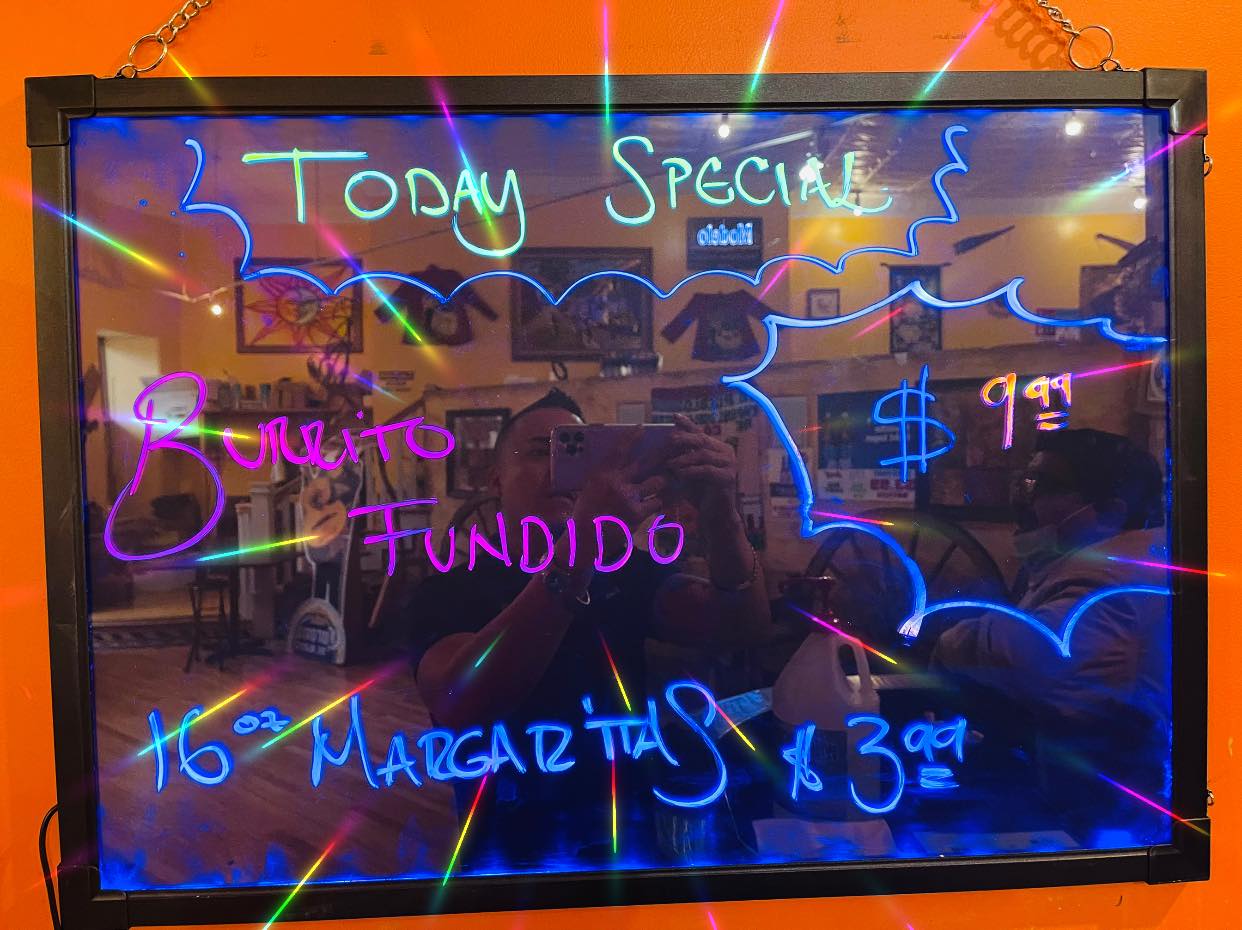 Today Special
Burrito
Fundido
$ 9.99
16 oz Margaritas $ 3.99
Modelo